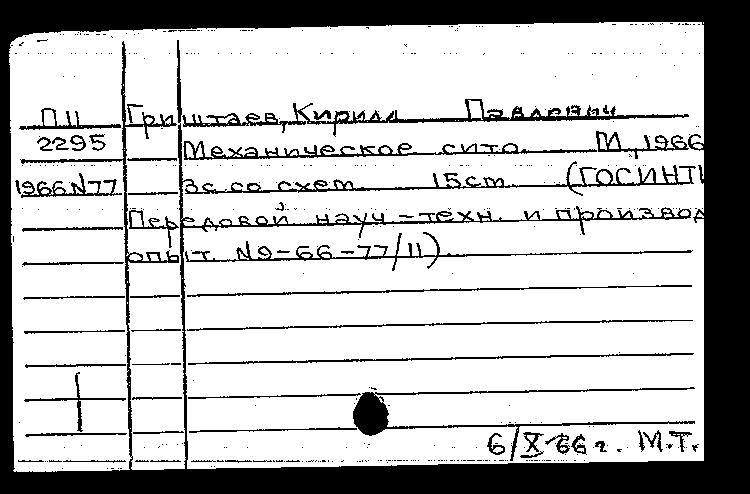 П11 Гриштаев, Кирилл Павлович
2295 Механическое сито. М., 1966
1966 N77 3с со схем. 15см (ГОСИНТИ
Передовой науч.-техн. и производ
опыт. N9-66-77/11).
6/X-66г. М.Т.